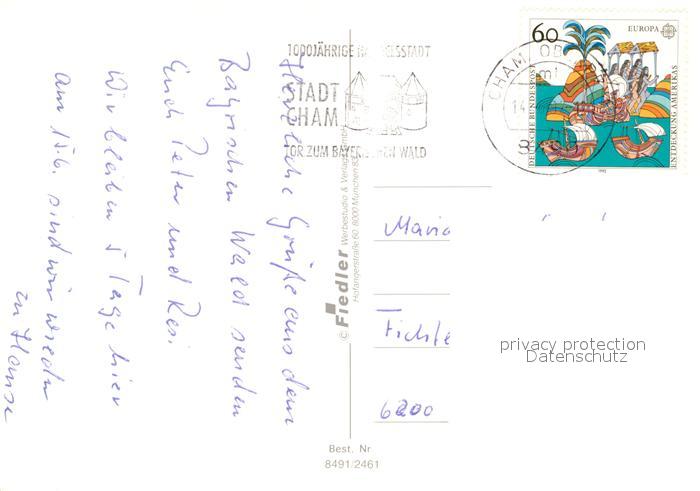 Herzliche Grüße aus dem
Bayrischen Wald senden
Euch Peter und Resi.
Wir bleiben 5 Tage hier
am 15.6. sind wir wieder
zu Hause
1000JÄHRIGE
STADT
CHAM
TOR ZUM BAYERISCHEN WALD
CHAM
60
EUROPA
DEUTSCHE BUNDESPOST
ENTDECKUNG AMERIKAS
1992
© Fiedler Werbestudio & Verlag
Hofangerstraße 60 8000 München 83
Maria
Fichte
6200
privacy protection
Datenschutz
Best. Nr
8491/2461